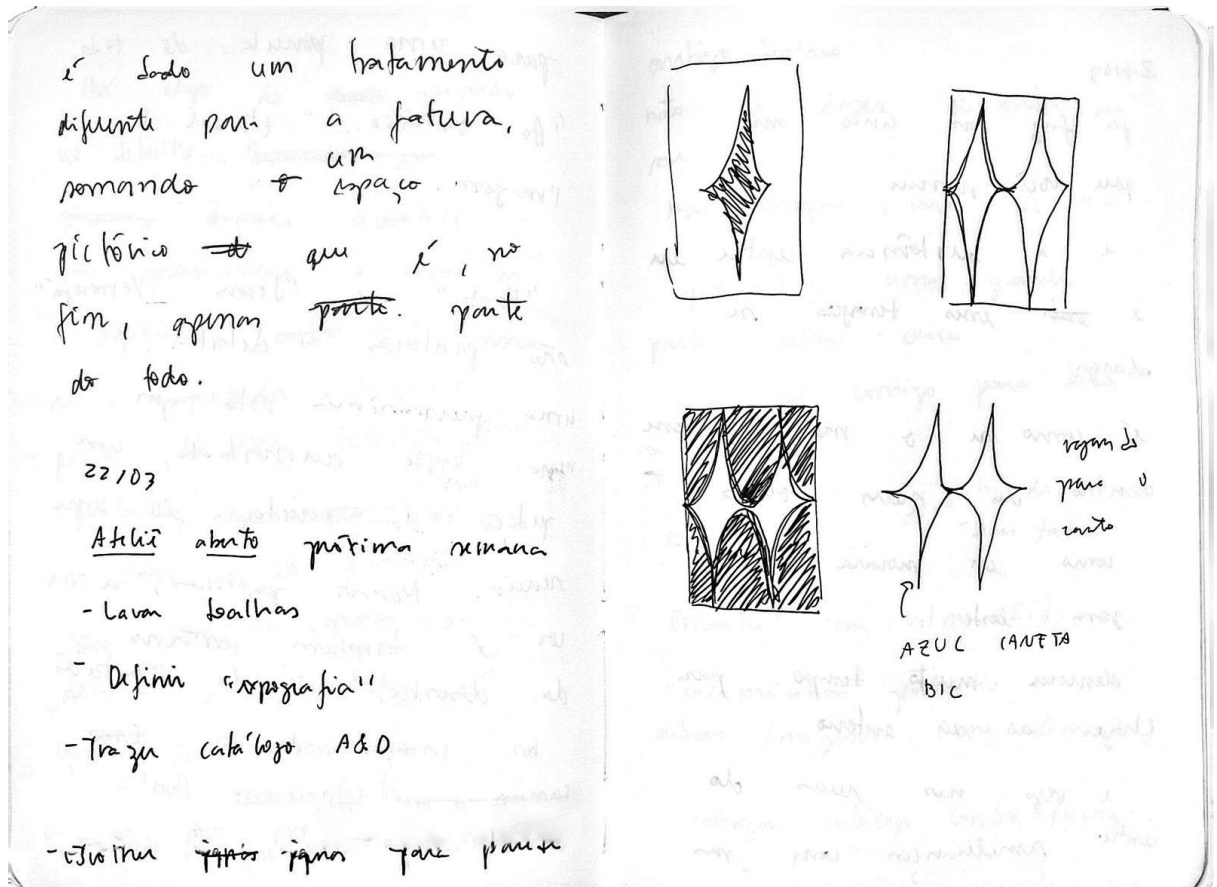 é dado um tratamento
diferente para a fatura,
somando um espaço
pictórico que é, no
fim, apenas parte
do todo.
22/03
Ateliê aberto próxima semana
- Lavar toalhas
- Definir "expografia"
- Trazer catálogo A&D
- Escolher para parede
para o
canto
AZUL CANETA
BIC